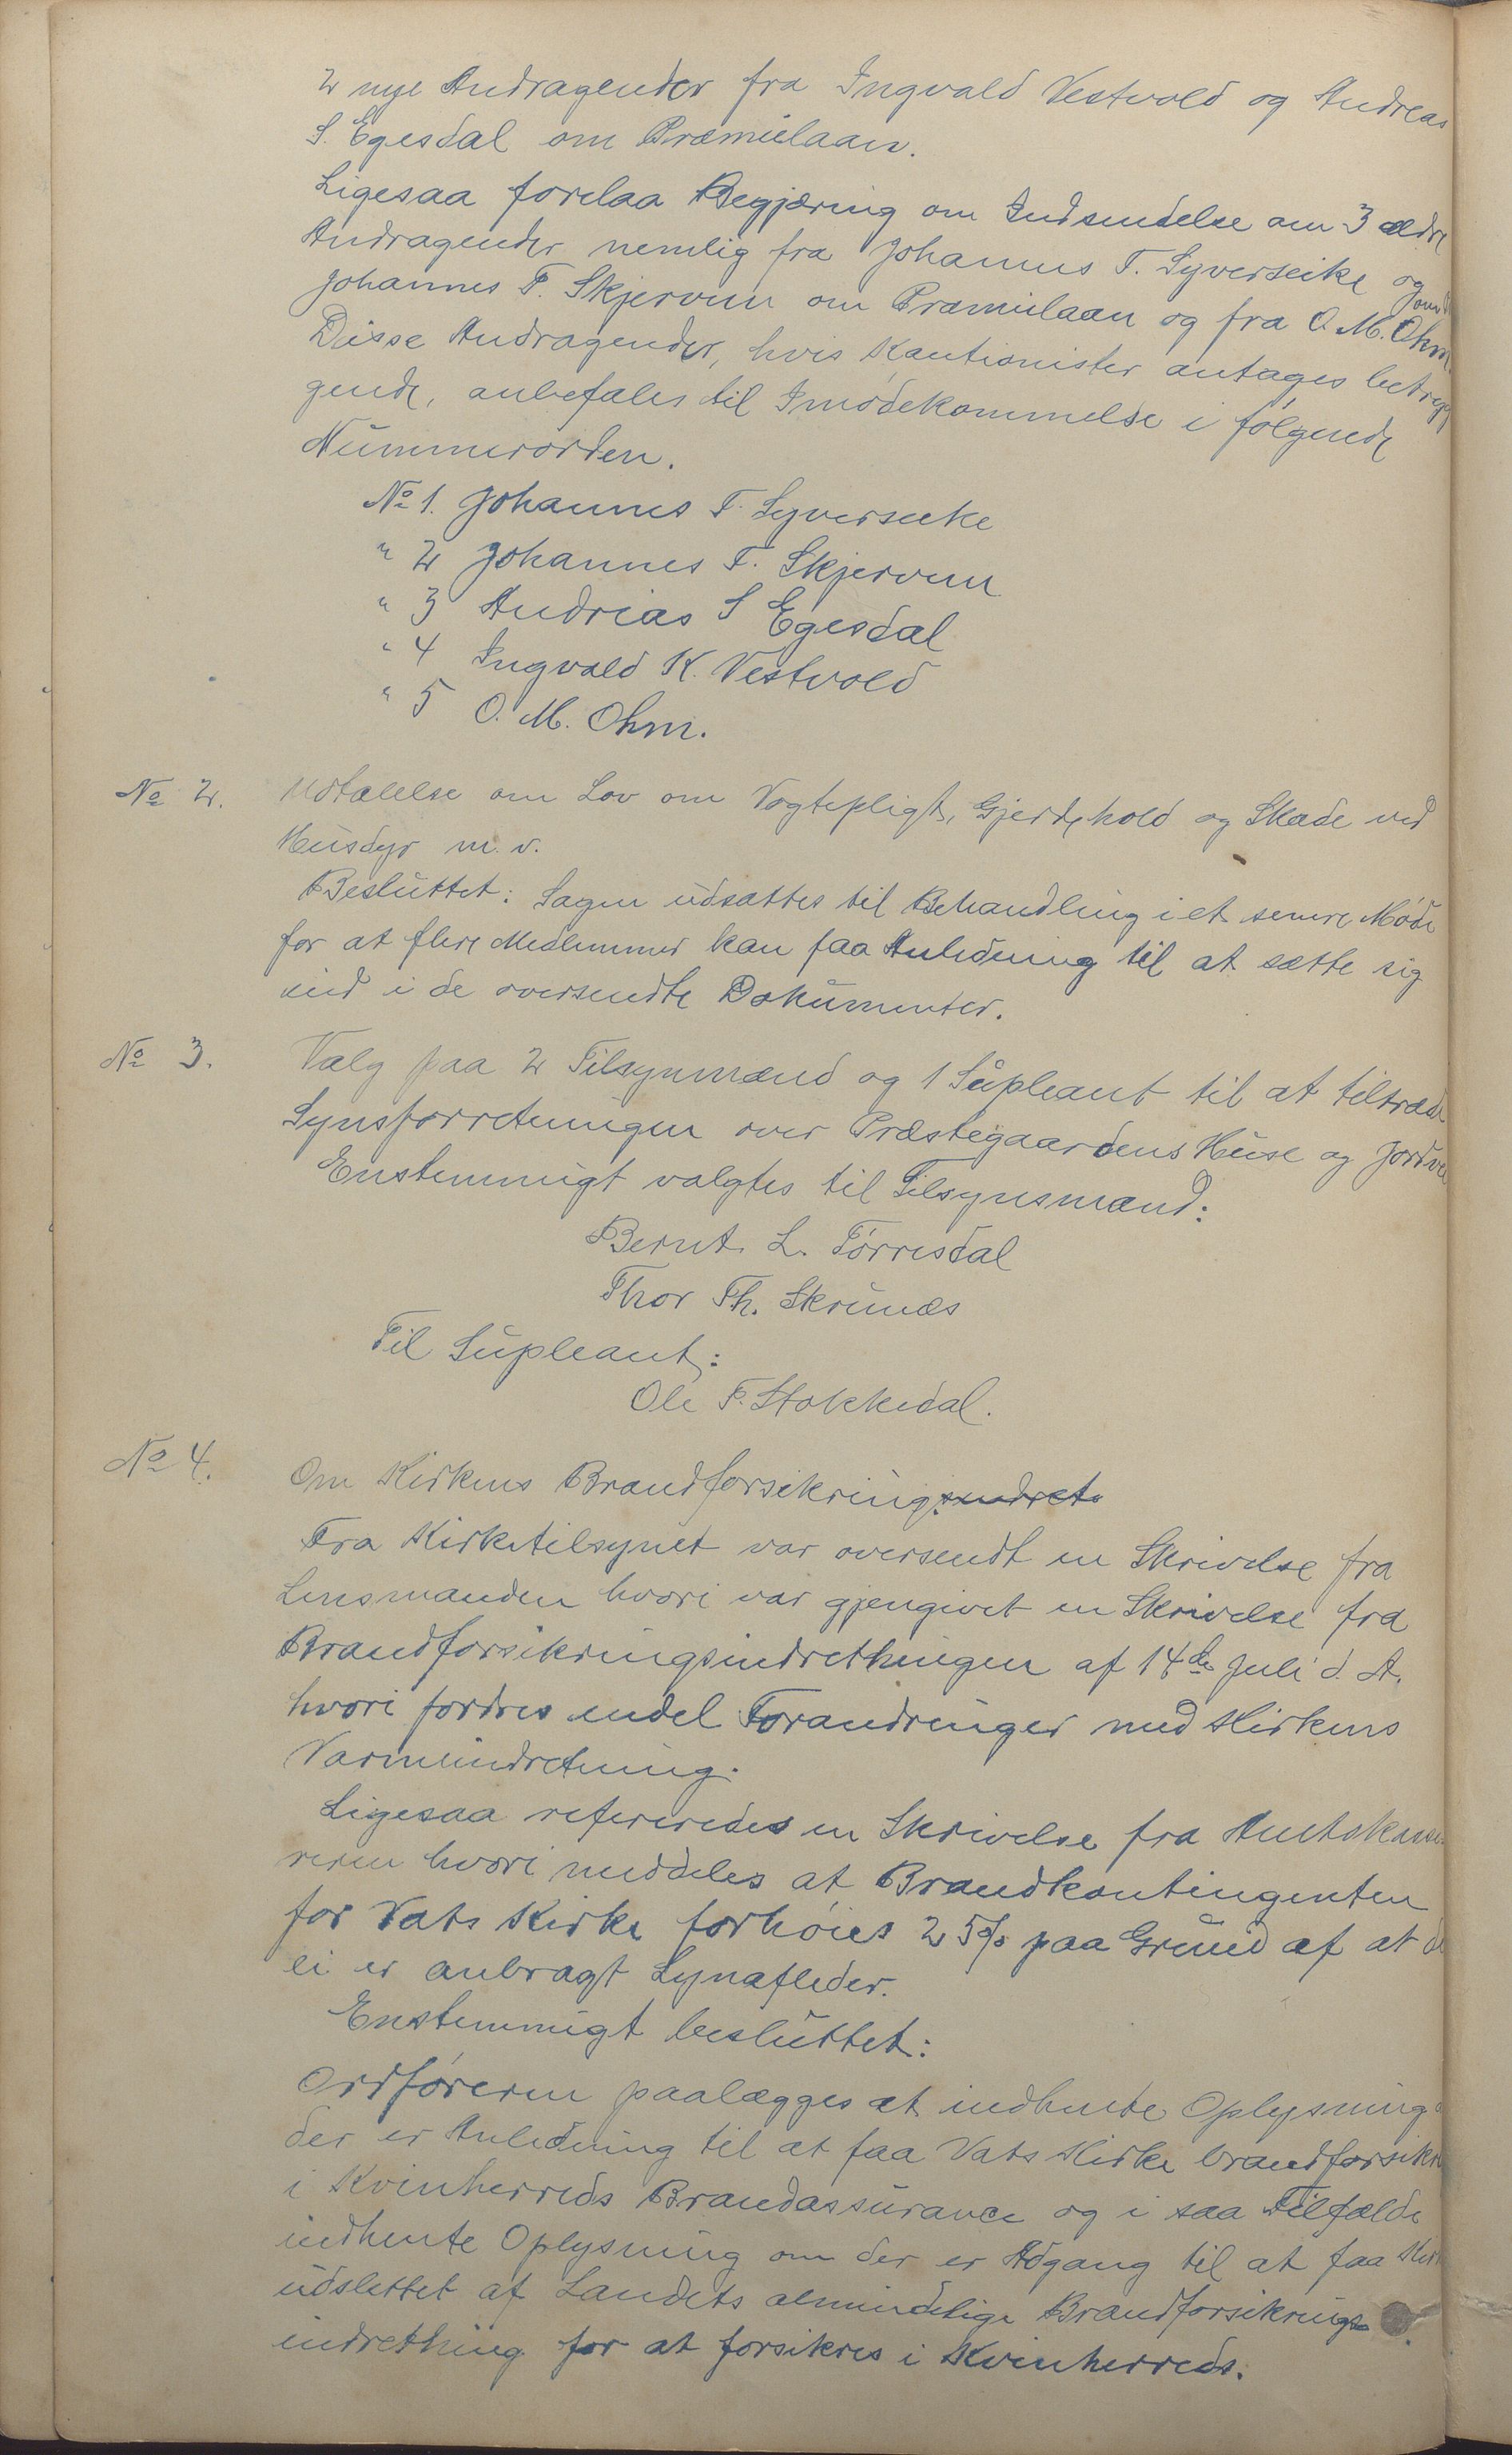 2 nye Andragender fra Ingvald Vestvold og Andreas
S. Egesdal om Præmielaan.
Ligesaa forelaa Begjæring om Indsendelse om 3 ældre
Andragender nemlig fra Johannes T. Syverseike og
Johannes T. Skjervum om Præmielaan og fra O. M. Ohm
Disse Andragender, hvis Kautionister antages betryg
gende, anbefales til Imødekommelse i følgende
Nummerorden.
No 1. Johannes T. Syverseike
" 2 Johannes T. Skjervum
" 3 Andreas S Egesdal
" 4 Ingvald K. Vestvold
" 5 O. M. Ohm.
No 2. Udtalelse om Lov om Vogtepligt, Gjerdehold og Skade ved
Husdyr m. v.
Besluttet: Sagen udsattes til Behandling i et senere Møde
for at flere Medlemmer kan faa Anledning til at sætte sig
ind i de oversendte Dokumenter.
No 3. Valg paa 2 Tilsynmænd og 1 Supleant til at tiltræde
Synsforretningen over Præstegaardens Huse og Jordvei
Enstemmigt valgtes til Tilsynsmænd:
Bernt L. Tørresdal
Thor Th. Skrunes
Til Supleant:
Ole T. Stokkedal.
No 4. Om Kirkens Brandforsikring.
Fra Kirketilsynet var oversendt en Skrivelse fra
Lensmanden hvori var gjengivet en Skrivelse fra
Brandforsikringsindrethingen af 14de Juli d. A.
hvori fordres endel Forandringer med Kirkens
Varmeindretning.
Ligesaa refereredes en Skrivelse fra Amtskasse
reren hvori meddeles at Brandkontingenten
for Vats Kirke forhøies 25% paa Grund af at d
ei er anbragt Lynafleder.
Enstemmigt besluttet:
Ordføreren paalægges at indhente Oplysning
der er Anledning til at faa Vats Kirke brandforsikr
i Kvinherreds Brandassurance og i saa Tilfælde
indhente Oplysning om der er Adgang til at faa Kirk
udslettet af Landets almindelige Brandforsikrings
indrethiug for at forsikres i Kvinherreds.